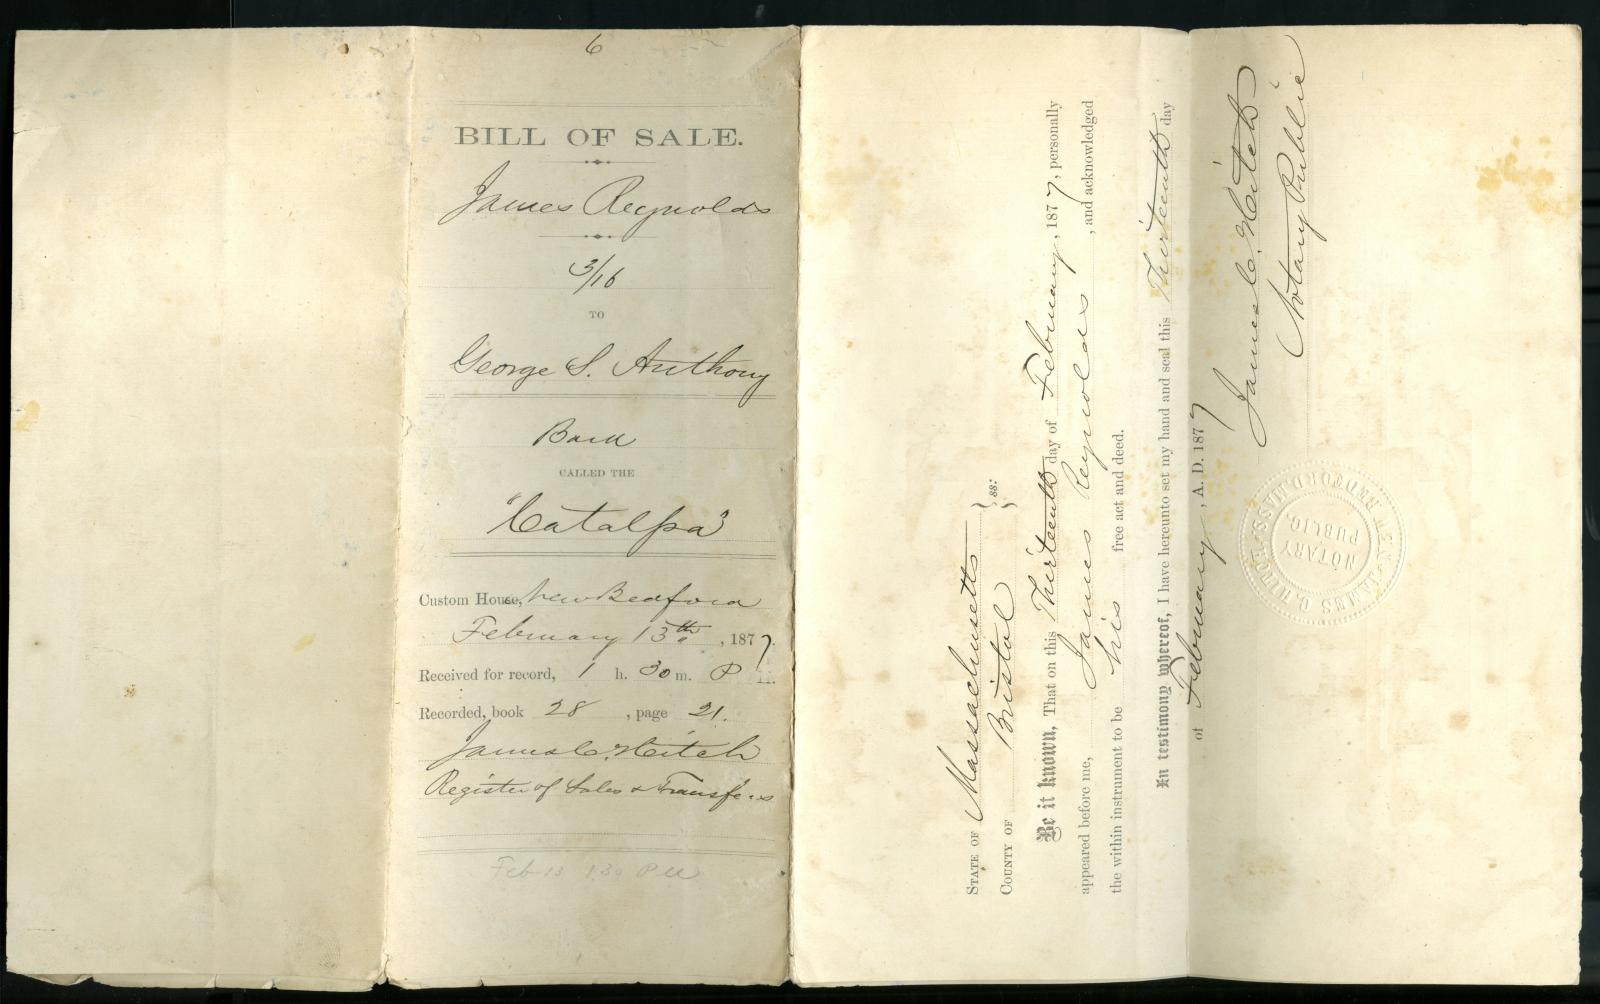 6
BILL OF SALE.
James Reynolds
3/16
TO
George S. Anthony
Bark
CALLED THE
"Catalpa"
Custom House, New Bedford
February 13th, 1877.
Received for record, 1 h. 30 m. P M.
Recorded, book 28, page 21.
James C. Hitch
Register of Sales & Transfers
Feb 13 1 30 PM
STATE OF Massachusetts
COUNTY OF Bristol } ss:
Be it known, That on this Thirteenth day of February, 1877, personally
appeared before me, James Reynolds, and acknowledged
the within instrument to be his free act and deed.
In testimony whereof, I have hereunto set my hand and seal this Thirteenth day
of February, A. D. 1877
James C. Hitch
Notary Public
JAMES C. HITCH NEW BEDFORD, MASS.
NOTARY
PUBLIC.